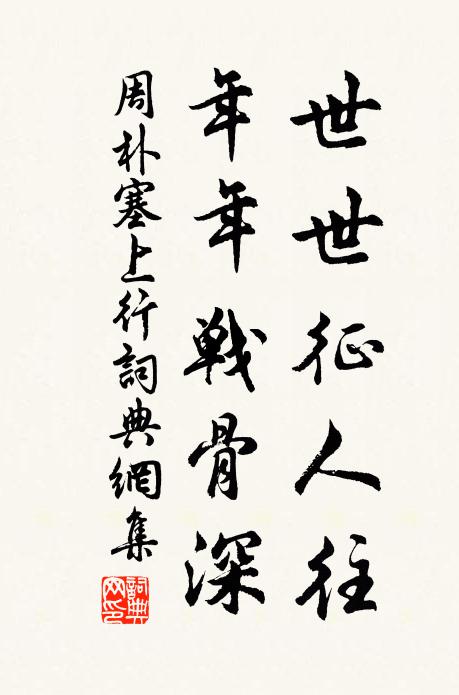 世世征人往
年年戰骨深
周朴塞上行詞典網集
詞典網印